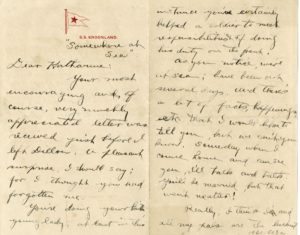 S.S. KROONLAND
"Somewhere at
Sea"
Dear Katharine:
Your most
encouraging and, of
course, very much
appreciated letter was
received just before I
left Dillon. A pleasant
surprise, I should say;
for I thought you had
forgotten me.
You're doing your bit
young lady, at least in this
instance you've certainly
helped a soldier to meet
responsibilities of doing
his duty on the front.
As you notice were
at sea; have been out
several days, and there's
a lot of facts happening
etc. that I would like to
tell you, but we can't you
know. Someday when I
come home and can see
you, I'll talk and talk
you'll be moved but that
want matter!
Really, I think and
all my pals are the